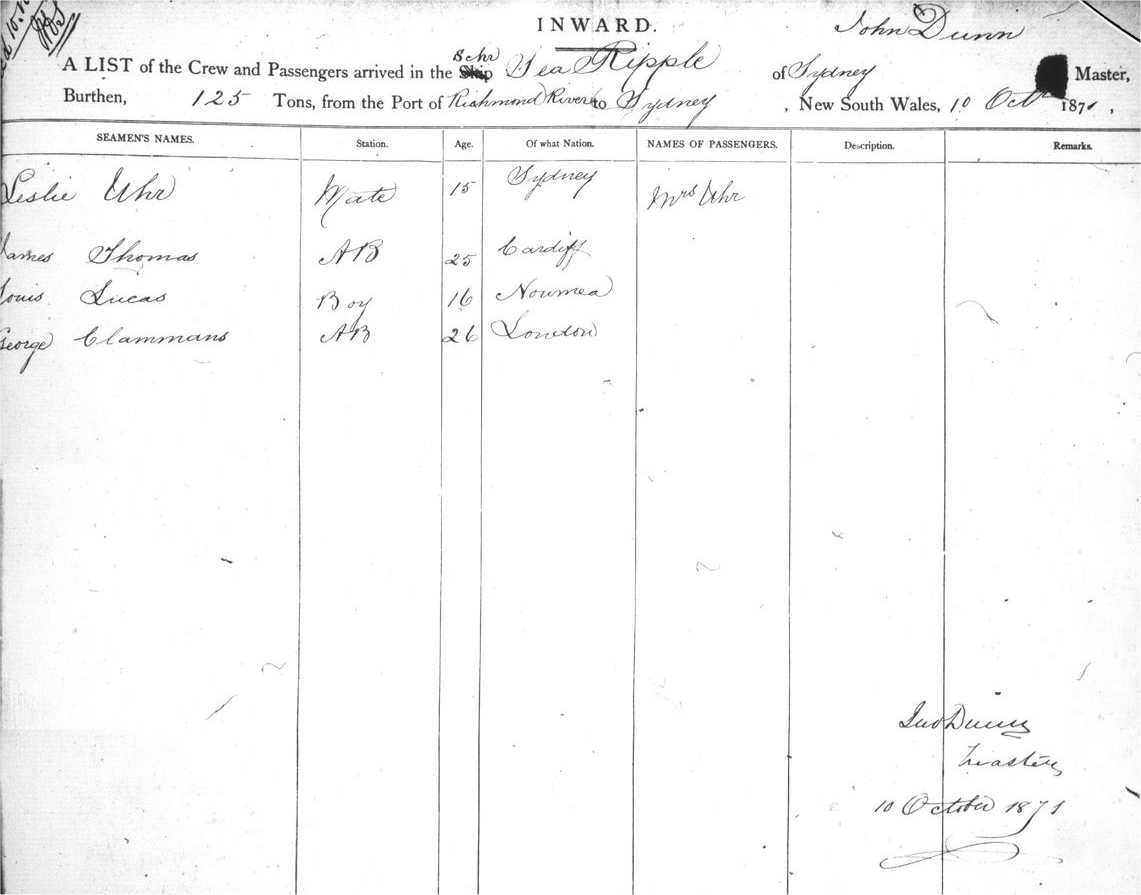 INWARD.
John Dunn
A LIST of the Crew and Passengers arrived in the Ship Schr Sea Ripple of Sydney Master,
Burthen, 125 Tons, from the Port of Richmond River to Sydney, New South Wales, 10 Octr 1871,
SEAMEN'S NAMES. Station. Age. Of what Nation. NAMES OF PASSENGERS. Description. Remarks.
Leslie Uhr Mate 15 Sydney Mrs Uhr
James Thomas AB 25 Cardiff
Louis Lucas Boy 16 Noumea
George Clammans AB 26 London
Jno Dunn
Master
10 October 1871